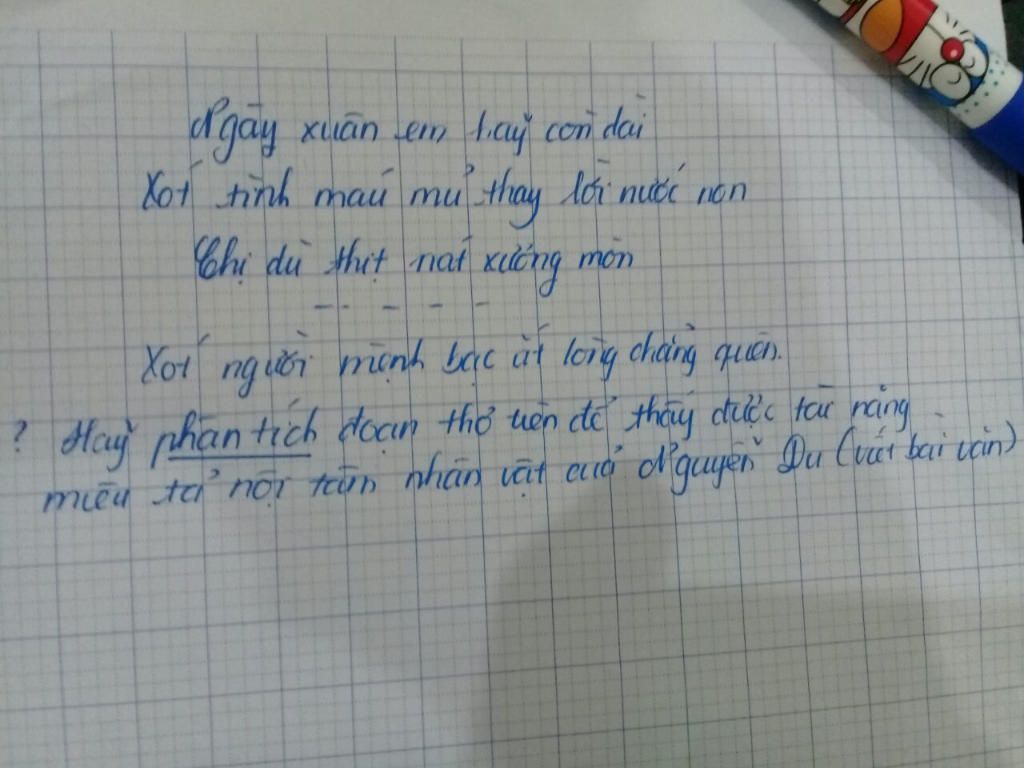 Ngày xuân em hãy còn dài
Xót tình máu mủ thay lời nước non
Chị dù thịt nát xương mòn
- - - - -
Xót người mệnh bạc ắt lòng chẳng quên.
? Hãy phân tích đoạn thơ trên để thấy được tài năng
miêu tả nội tâm nhân vật của Nguyễn Du (viết bài văn)